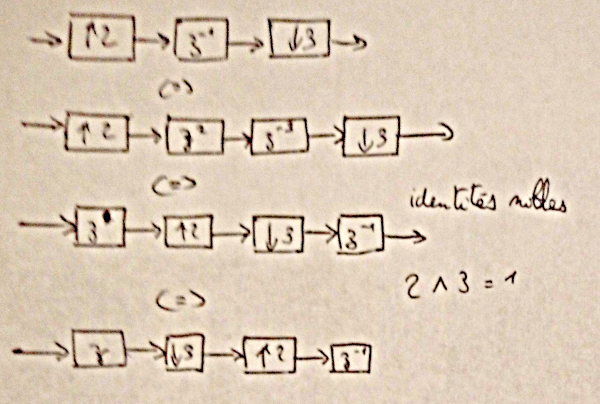 → ↑2 → z⁻¹ → ↓3 →
<=>
→ ↑2 → z² → z⁻³ → ↓3 →
<=>
→ z → ↑2 → ↓3 → z⁻¹ →
identités nobles
2 ∧ 3 = 1
<=>
→ z → ↓3 → ↑2 → z⁻¹